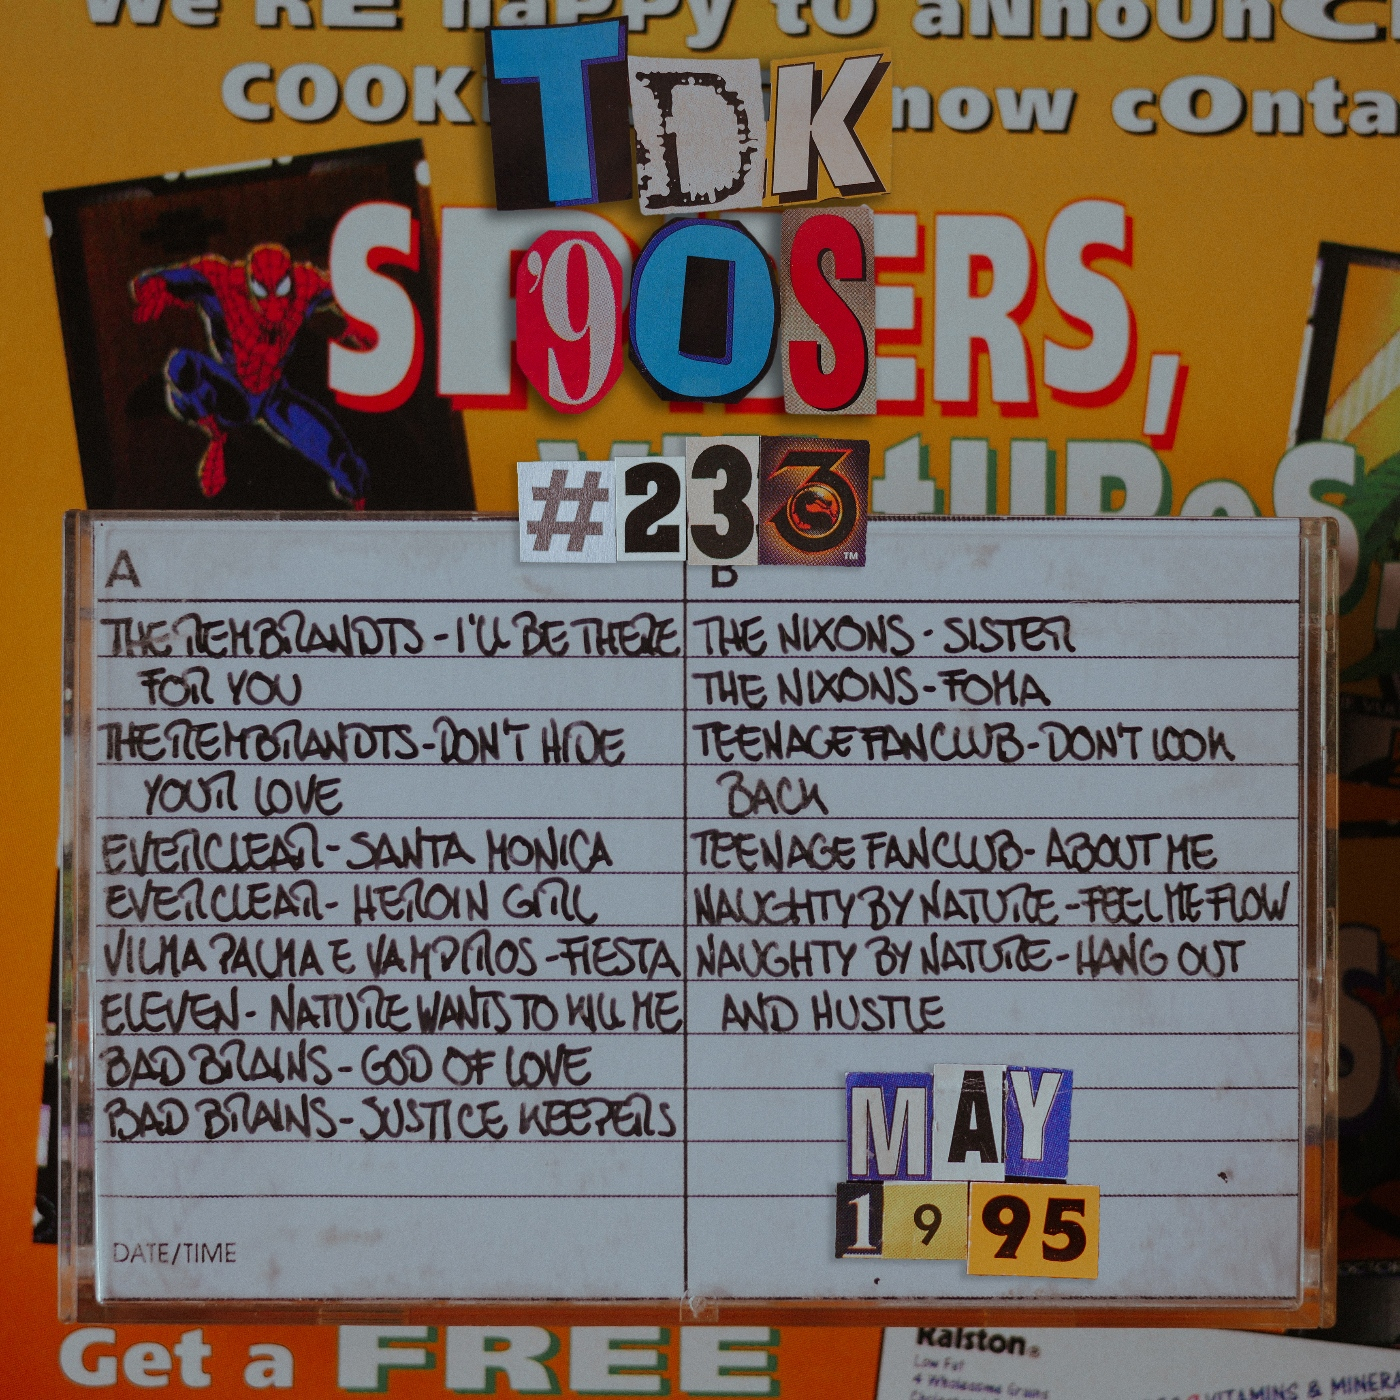 We'RE haPPy to aNnoUnC
COOK now cOnta
TDK
SP ERS,
'90S
#233
A
B
THE REMBRANDTS - I'LL BE THERE
FOR YOU
THE REMBRANDTS - DON'T HIDE
YOUR LOVE
EVERCLEAR - SANTA MONICA
EVERCLEAR - HEROIN GIRL
VILMA PALMA E VAMPIROS - FIESTA
ELEVEN - NATURE WANTS TO KILL ME
BAD BRAINS - GOD OF LOVE
BAD BRAINS - JUSTICE KEEPERS
THE NIXONS - SISTER
THE NIXONS - FOMA
TEENAGE FANCLUB - DON'T LOOK
BACK
TEENAGE FANCLUB - ABOUT ME
NAUGHTY BY NATURE - FEEL ME FLOW
NAUGHTY BY NATURE - HANG OUT
AND HUSTLE
MAY
1995
DATE/TIME
Get a FREE
Ralston®
Low Fat
4 Wholesome Grains
VITAMINS & MINER